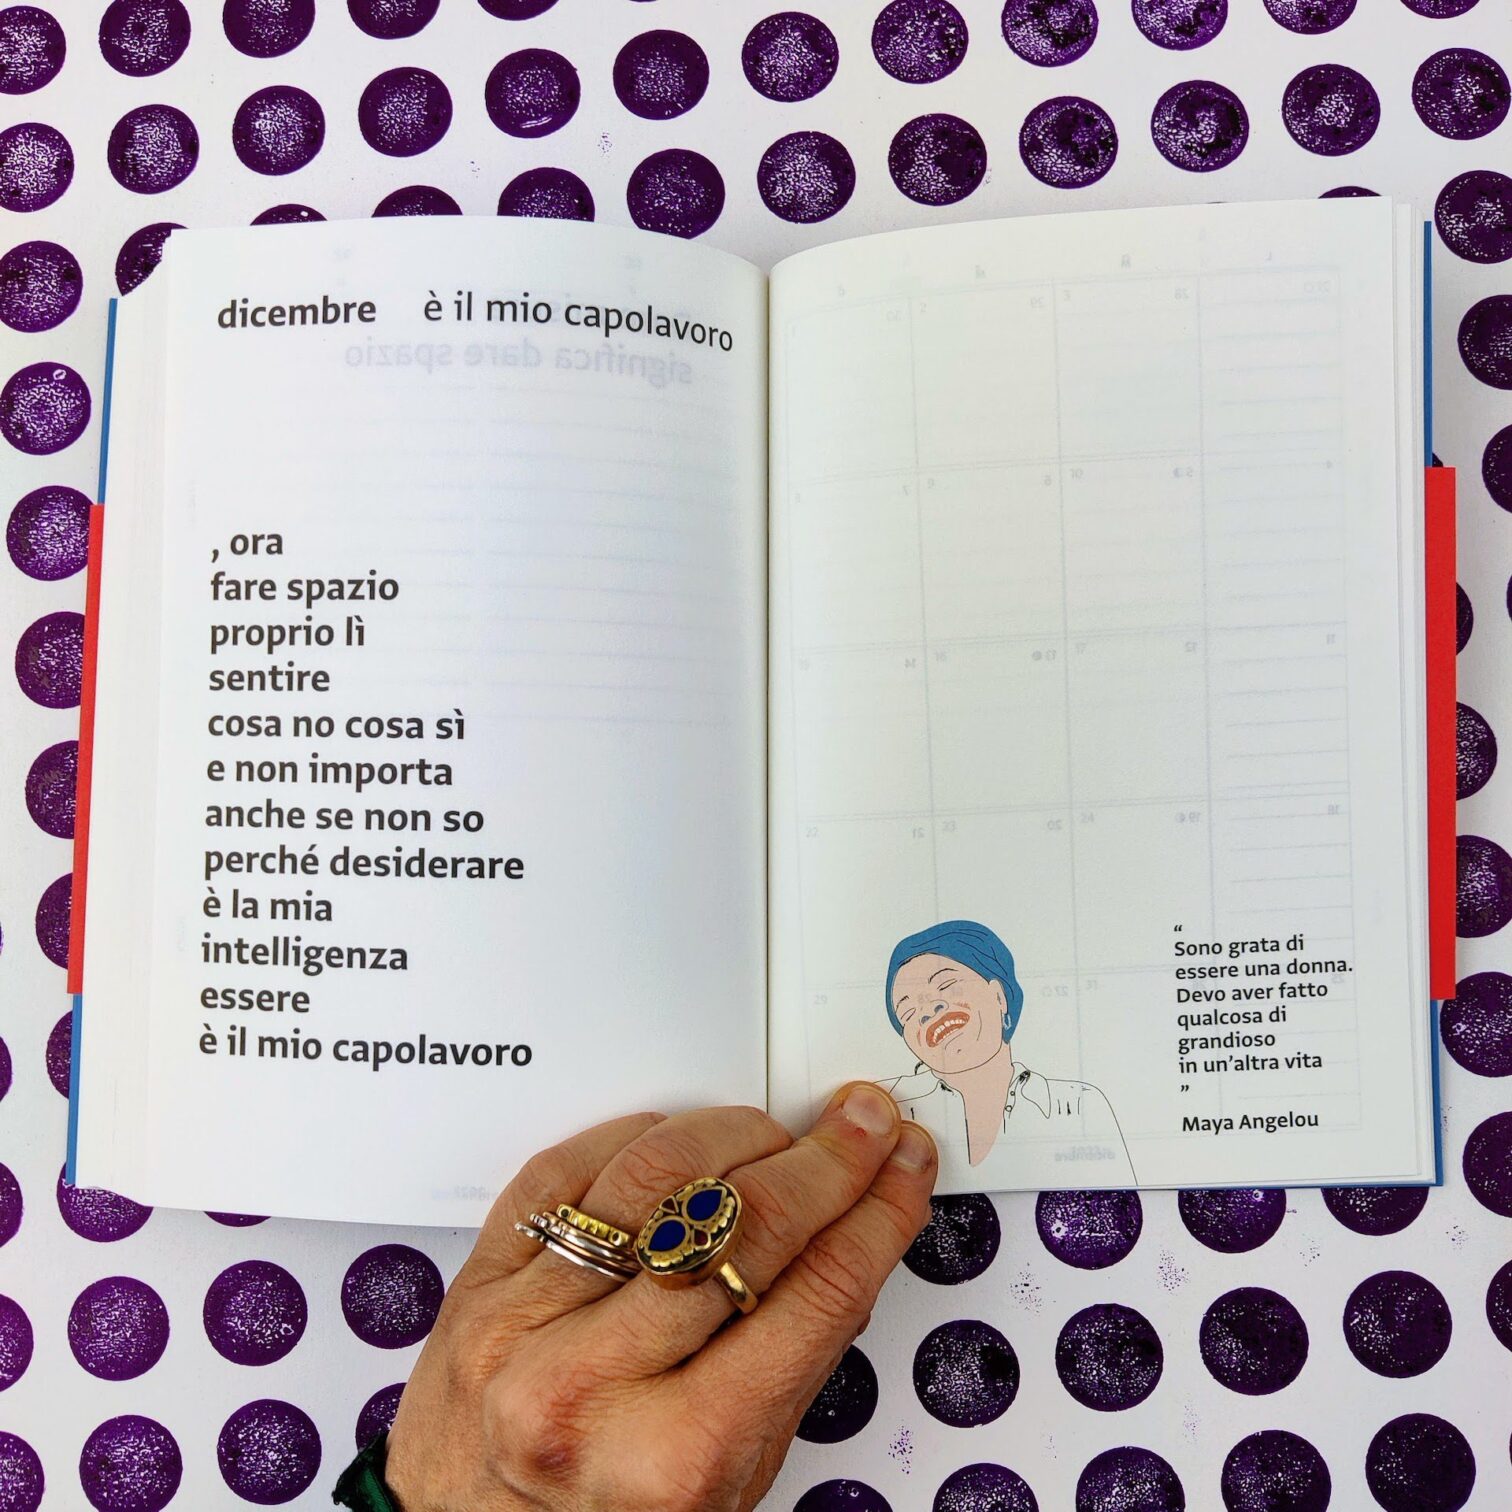 dicembre è il mio capolavoro
significa dare spazio
, ora
fare spazio
proprio lì
sentire
cosa no cosa sì
e non importa
anche se non so
perché desiderare
è la mia
intelligenza
essere
è il mio capolavoro
“
Sono grata di
essere una donna.
Devo aver fatto
qualcosa di
grandioso
in un’altra vita
”
Maya Angelou
dicembre